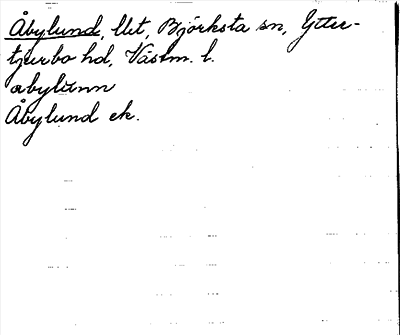 Åbylund, lht, Björksta sn, Ytter-
tjurbo hd, Västm. l.
abylünn
Åbylund ek.